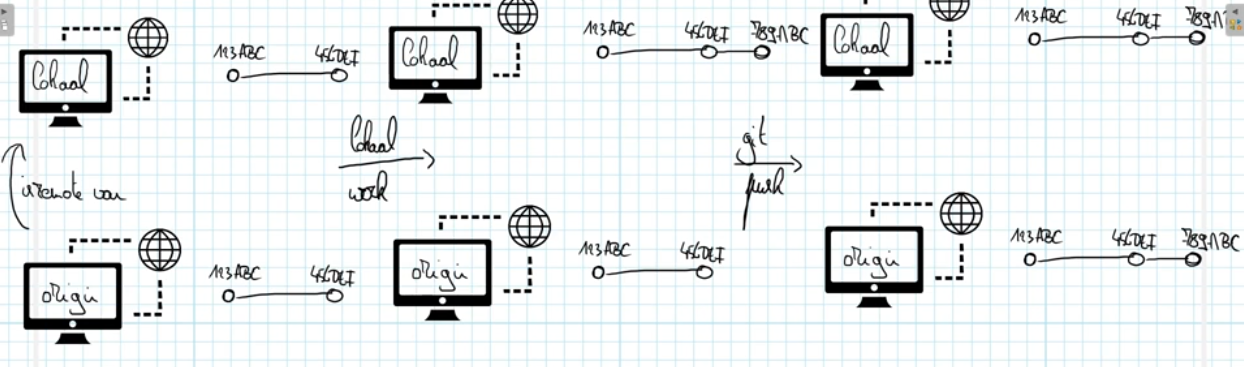 Lokaal
123ABC 456DEF
Lokaal
123ABC 456DEF 789ABC
Lokaal
123ABC 456DEF 789ABC
is remote van
Lokaal
work
git
push
origin
123ABC 456DEF
origin
123ABC 456DEF
origin
123ABC 456DEF 789ABC